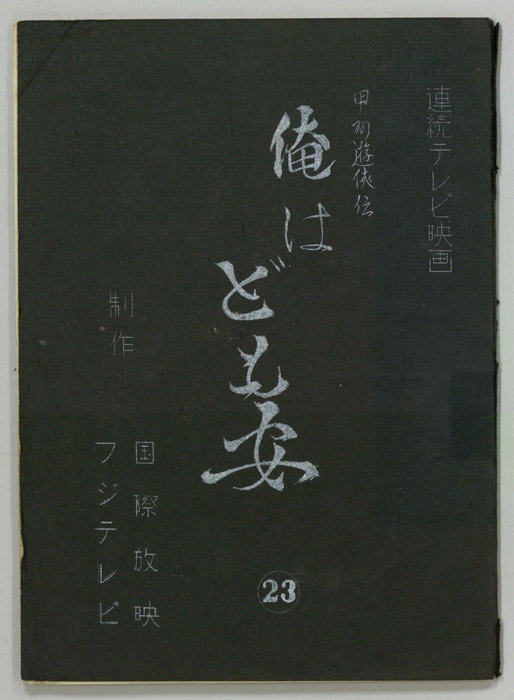 連続テレビ映画
甲州遊侠伝
俺はども安
23
制作
国際放映
フジテレビ